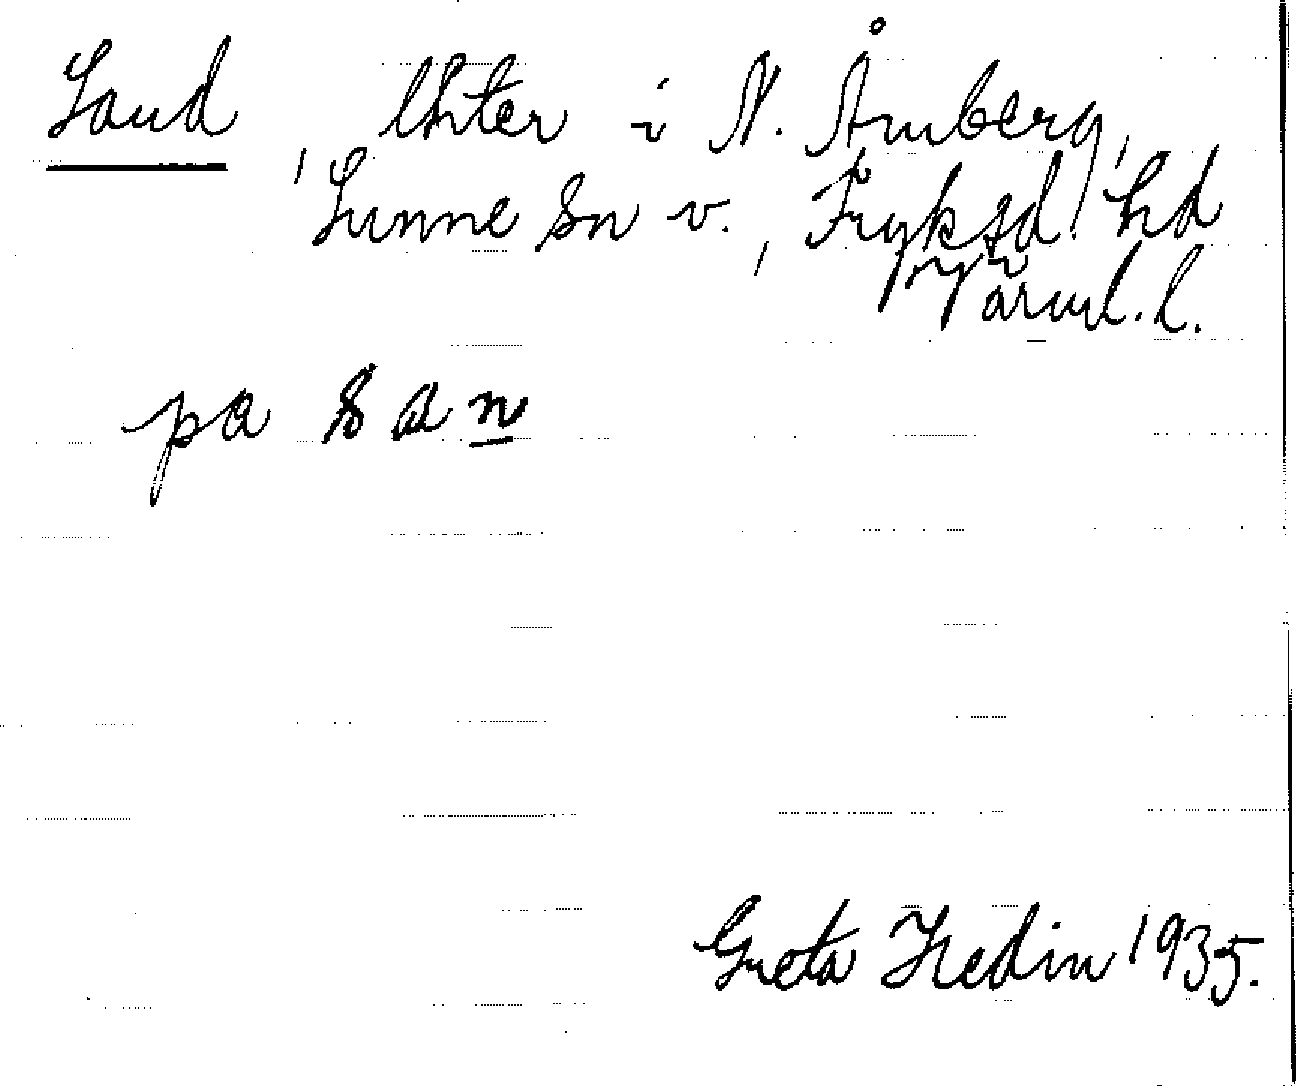 Sand lhter i N. Åmberg,
Sunne sn v., Fryksd. hd
Värml. l.
pa s a n
Greta Hedin 1935.